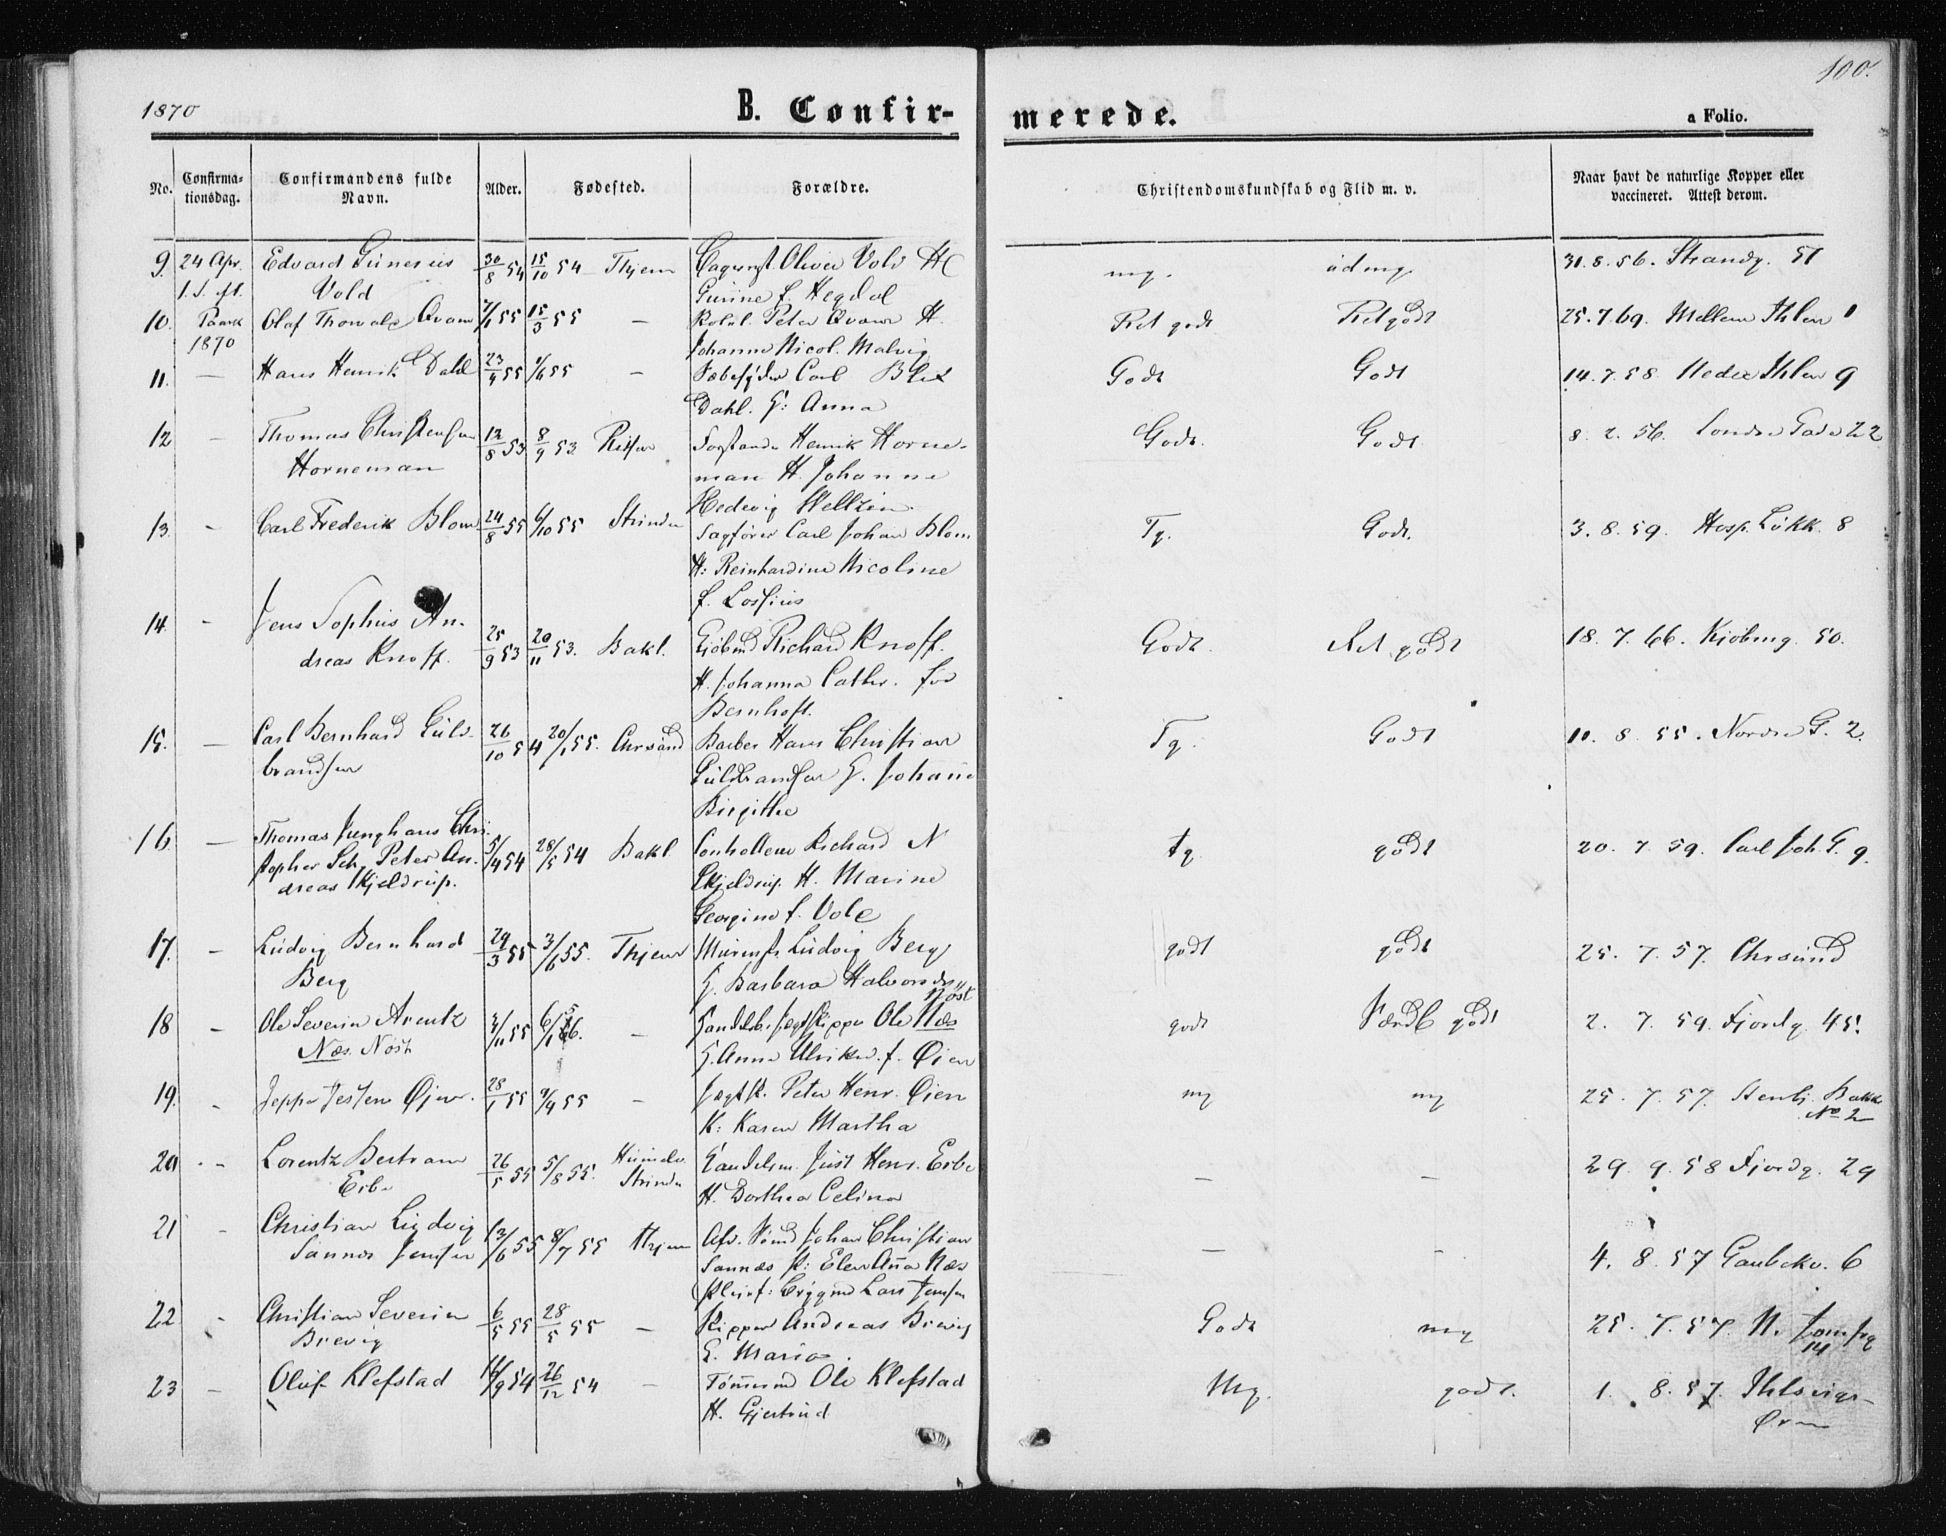 1870
B. Confir-
merede.
100.
a Folio.
No.
Confirma-
tionsdag.
Confirmandens fulde
Navn.
Alder.
Fødested.
Forældre.
Christendomskundskab og Flid m. v.
Naar havt de naturlige Kopper eller
vaccineret. Attest derom.
9. 24 Apr. Edvard 30/8 54 15/10 54 Oliver Vold mg. 31.8.56. Strandg. 51
Vold Gurine f. Hegdal
10. Olaf Qvam 7/1 55 15/3 55 — Peter Qvam H. Ret godt Ret godt 25.7.69. Mellem Ihlen 1
1870 Johanne Nicol. Malvig
11. — Hans Henrik Dahl 23/4 55 1/6 55 — Carl Blix Godt Godt 14.7.58. Nedre Ihlen 9
Dahl. G: Anna
12 — Thomas Christensen 12/8 53 8/9 53 Henrik Horne- Godt. Godt 8.2.56. Søndre Gade 22
Horneman man H. Johanne
Hedevig
13. — Carl Frederik Blom 24/8 55 6/10 55 Strinden Sagfører Carl Johan Blom Tg. Godt. 3.8.59. Hosp. Løkk. 8
H: Reinhardine Nicoline
f. Lossius
14. — Jens Sophus An-
dreas Knoff. 25/9 53 20/11 53. Bakl. Richard Knoff. Godt. Ret godt 18.7.66. Kjøbmg. 50.
H. Johanna Cathr. fød
Bernhoft.
15. — Carl Bernhard Guld- 26/10 54 20/1 55. Chrsund Barber Hans Christian Tg. Godt 10.8.55. Nordre G. 2.
brandsen Guldbrandsen G. Johanne
Birgithe
16 — Thomas Junghans Chri-
stopher Sch. Peter An- 5/4 54 28/5 54 Bakl. Richard N tg godt 20.7.59. Carl Joh. G. 9.
dreas Kjeldrup. H. Marine
Georgine f. Vold
17. — Ludvig Bernhard 29/3 55 3/6 55. Ludvig Berg godt godt 25.7.57. Chrsund
Berg G. Barbara
18 — Ole Severin Arentz 3/11 55 — Ole Næs Nøst godt godt 2.7.59. Fjordg. 45.
Næs. Nøst G. Anna Ulrike. f. Øien
19. — Jeppe Øien 28/1 55 9/4 55 — Peter Henr. Øien mg mg 25.7.57. Bakke
No 2
K: Karen Martha
20. — Lorentz Bertram 26/5 55 5/8 55. Strinden Handelsm. Just Henr. Erbe — — 29.9.58 Fjordg. 29
Erbe H. Dorthea Celina
21 — Christian Ludvig 13/6 55 8/7 55 Johan Christian — —
Sannes Jensen Sannæs 4.8.57 Gaubekv. 6
Lars Jensen
22 — Christian Severin 6/5 55 28/5 55 — Skipper Andreas Brevig Godt mg 25.7.57. N.
14
Brevig G. Maria.
23 — Oluf Klefstad 14/9 54 26/12 54 — Tømmermd Ole Klefstad Mg. godt. 1.8.57. Ihlsvigs-
H. Gjertrud Øren